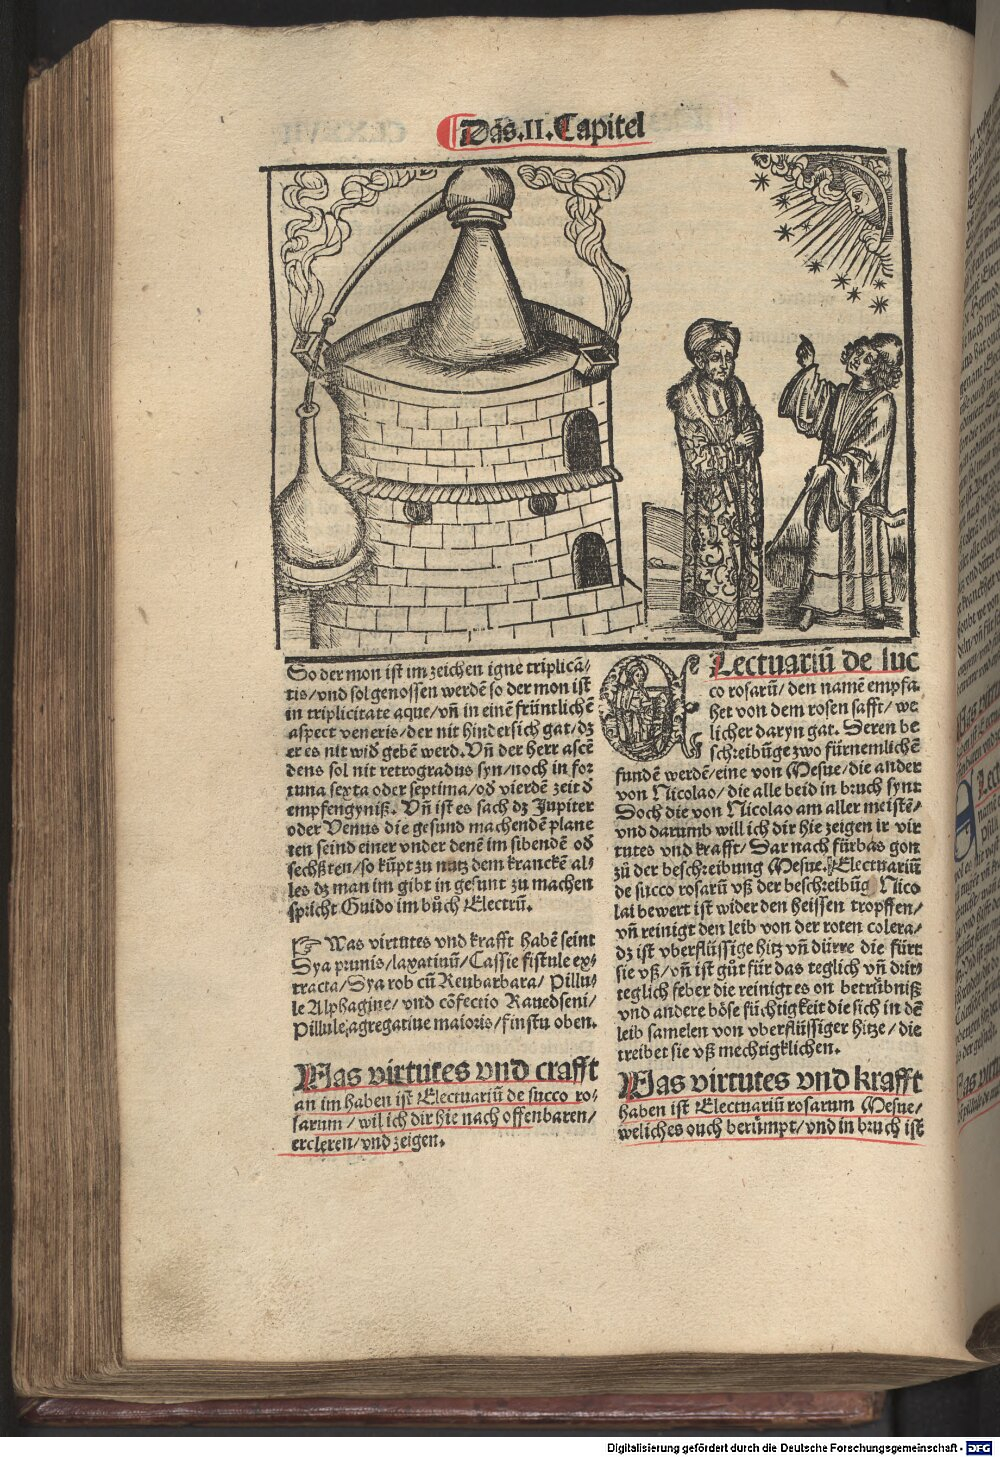 Das.II.Capitel
So der mon ist im zeichen igne triplicā/
tis/vnd sol genossen werdē so der mon ist
in triplicitate aque/vñ in einē früntlichē
aspect veneris/der nit hindersich gat/dz
er es nit wid̄ gebē werd. Vñ der herr ascē
dens sol nit retrogradus syn/noch in for
tuna sexta oder septima/od̄ vierdē zeit d̄
empfengyniß. Vñ ist es sach dz Jupiter
oder Venus die gesund machendē plane
ten seind einer vnder denē im sibendē od̄
sechßten/so kūpt zu nutz dem kranckē al/
les dz man im gibt in gesunt zu machen
spricht Guido im bůch Electrū.
☞ Was virtutes vnd krafft habē seint
Dya prunis/laxatiuū/Cassie fistule ex/
tracta/Dya rob cū Reubarbara/Pillu/
le Alphagine/vnd cōfectio Rauedseni/
Pillule,agregatiue maioris/finstu oben.
Was virtutes vnd crafft
an im haben ist Electuariū de succo ro/
sarum/wil ich dir hie nach offenbaren/
ercleren/vnd zeigen.
ELectuariū de suc
co rosarū/den namē empfa
het von dem rosen safft/we
licher daryn gat. Deren be
schreibūge zwo fürnemlichē
fundē werdē/eine von Mesue/die ander
von Nicolao/die alle beid in bruch synt
Doch die von Nicolao am aller meistē/
vnd darumb will ich dir hie zeigen ir vir
tutes vnd krafft/Dar nach fürbas gon
zů der beschreibung Mesue. Electuariū
de succo rosarū vß der beschreibūg Nico
lai bewert ist wider den heissen tropffen/
vñ reinigt den leib von der roten colera/
dz ist vberflüssige hitz vñ dürre die fürt
sie vß/vñ ist gůt für das teglich vñ drit/
teglich feber die reinigt es on betrübniß
vnd andere böse füchtigkeit die sich in dē
leib samelen von vberflüssiger hitze/die
treibet sie vß mechtigklichen.
Was virtutes vnd krafft
haben ist Electuariū rosarum Mesue/
weliches ouch berümpt/vnd in bruch ist
Digitalisierung gefördert durch die Deutsche Forschungsgemeinschaft - DFG